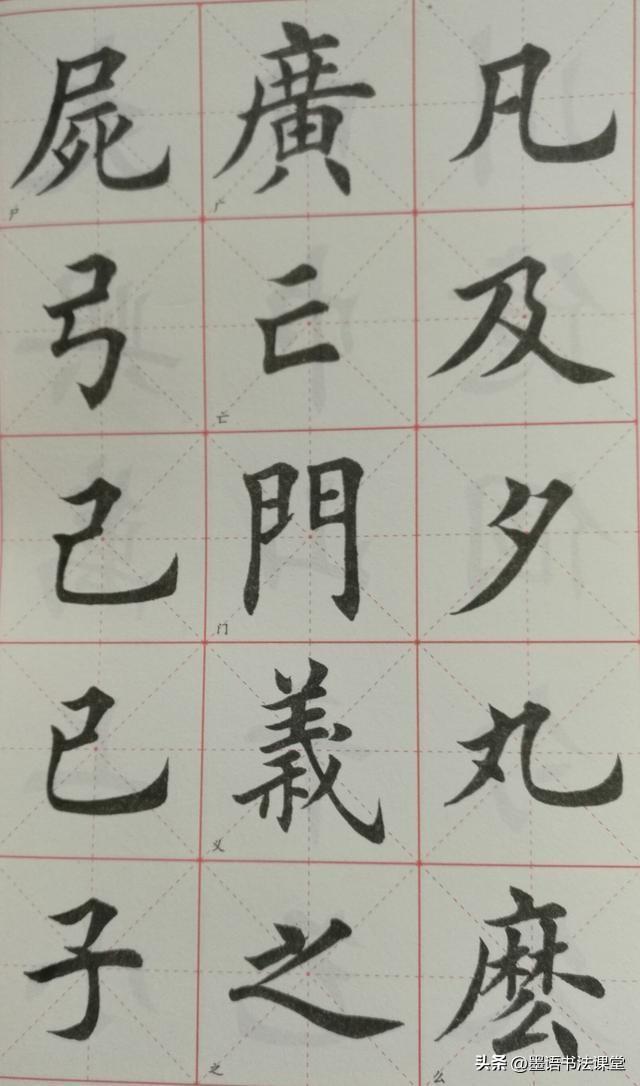 凡及夕丸麼 么
廣 广 亡 亡 門 门 義 义 之 之
屍 尸 弓己已子
头条 @墨语书法课堂